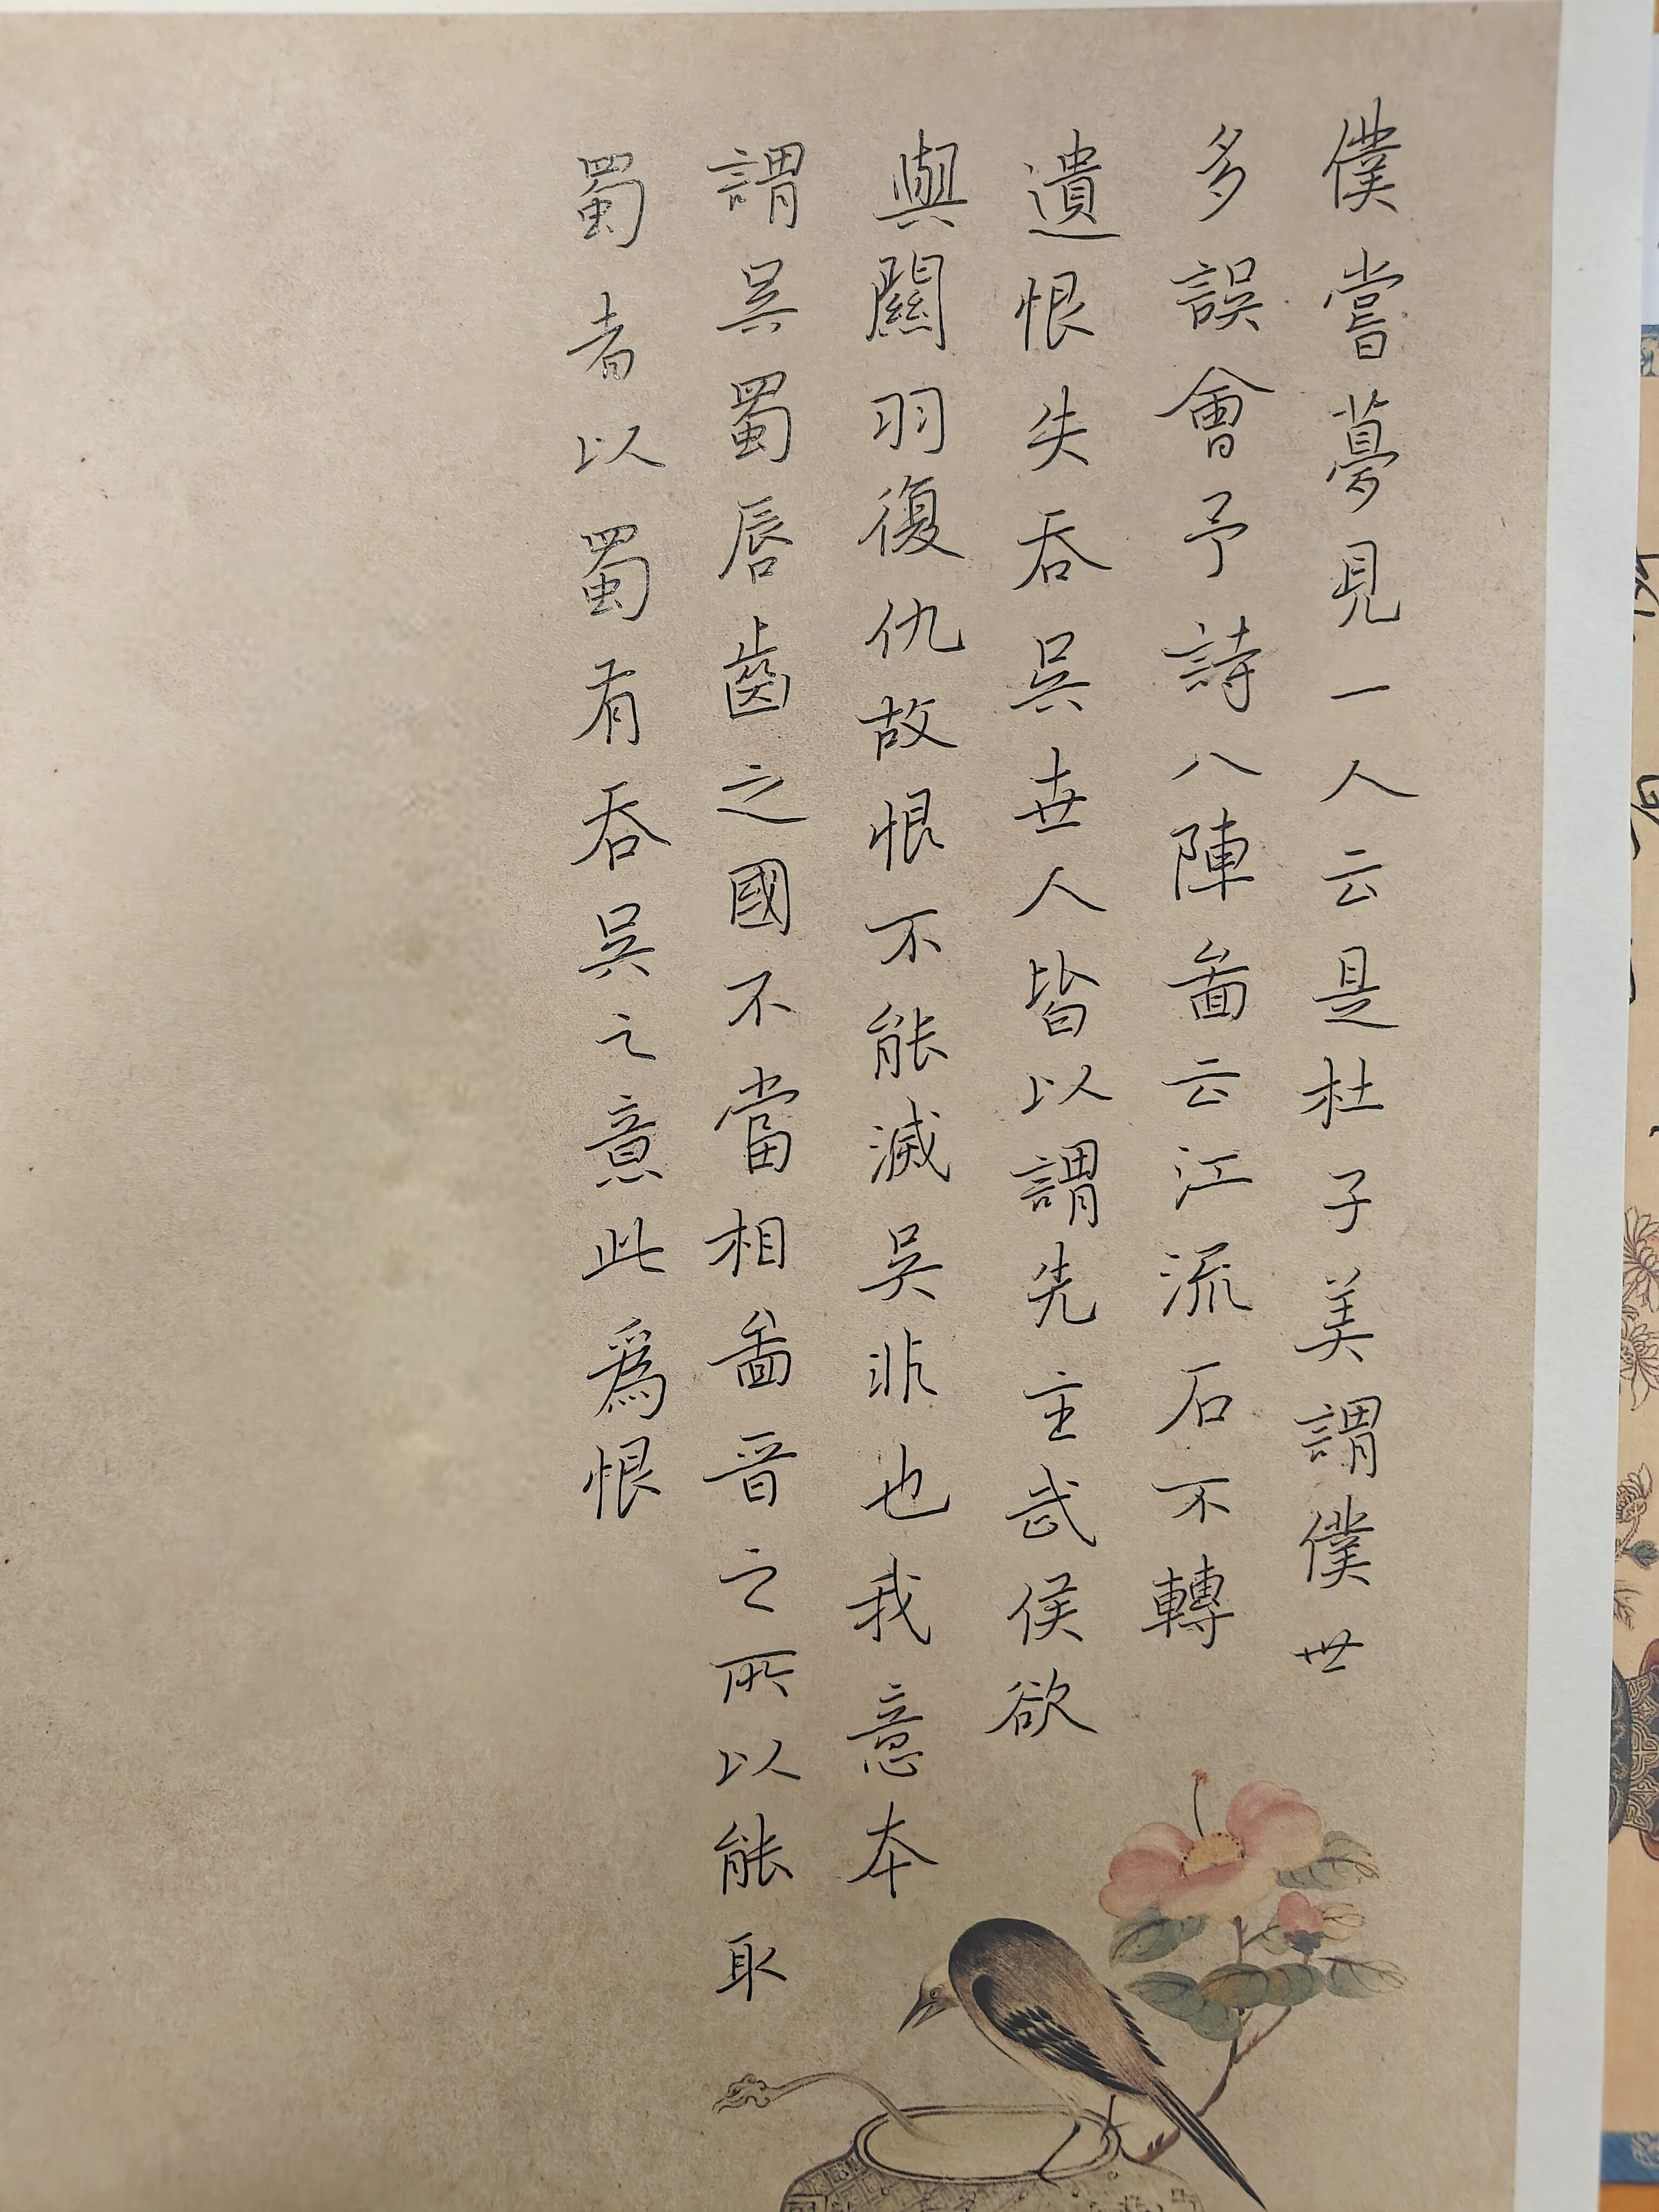 僕嘗夢見一人云是杜子美謂僕世
多誤會予詩八陣啚云江流石不轉
遺恨失吞吳世人皆以謂先主武侯欲
與關羽復仇故恨不能滅吳非也我意本
謂吳蜀唇齒之國不當相啚晉之所以能取
蜀者以蜀有吞吳之意此爲恨